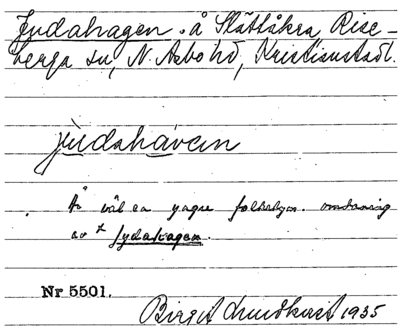 Judahagen å Slättåkra, Rise-
berga sn, N. Åsbo hd, Kristianstads l.
judahàvan
Är väl en yngre folketym. omdaning
av *Jydahagen.
Nr 5501.
Birgit Lundkvist 1935